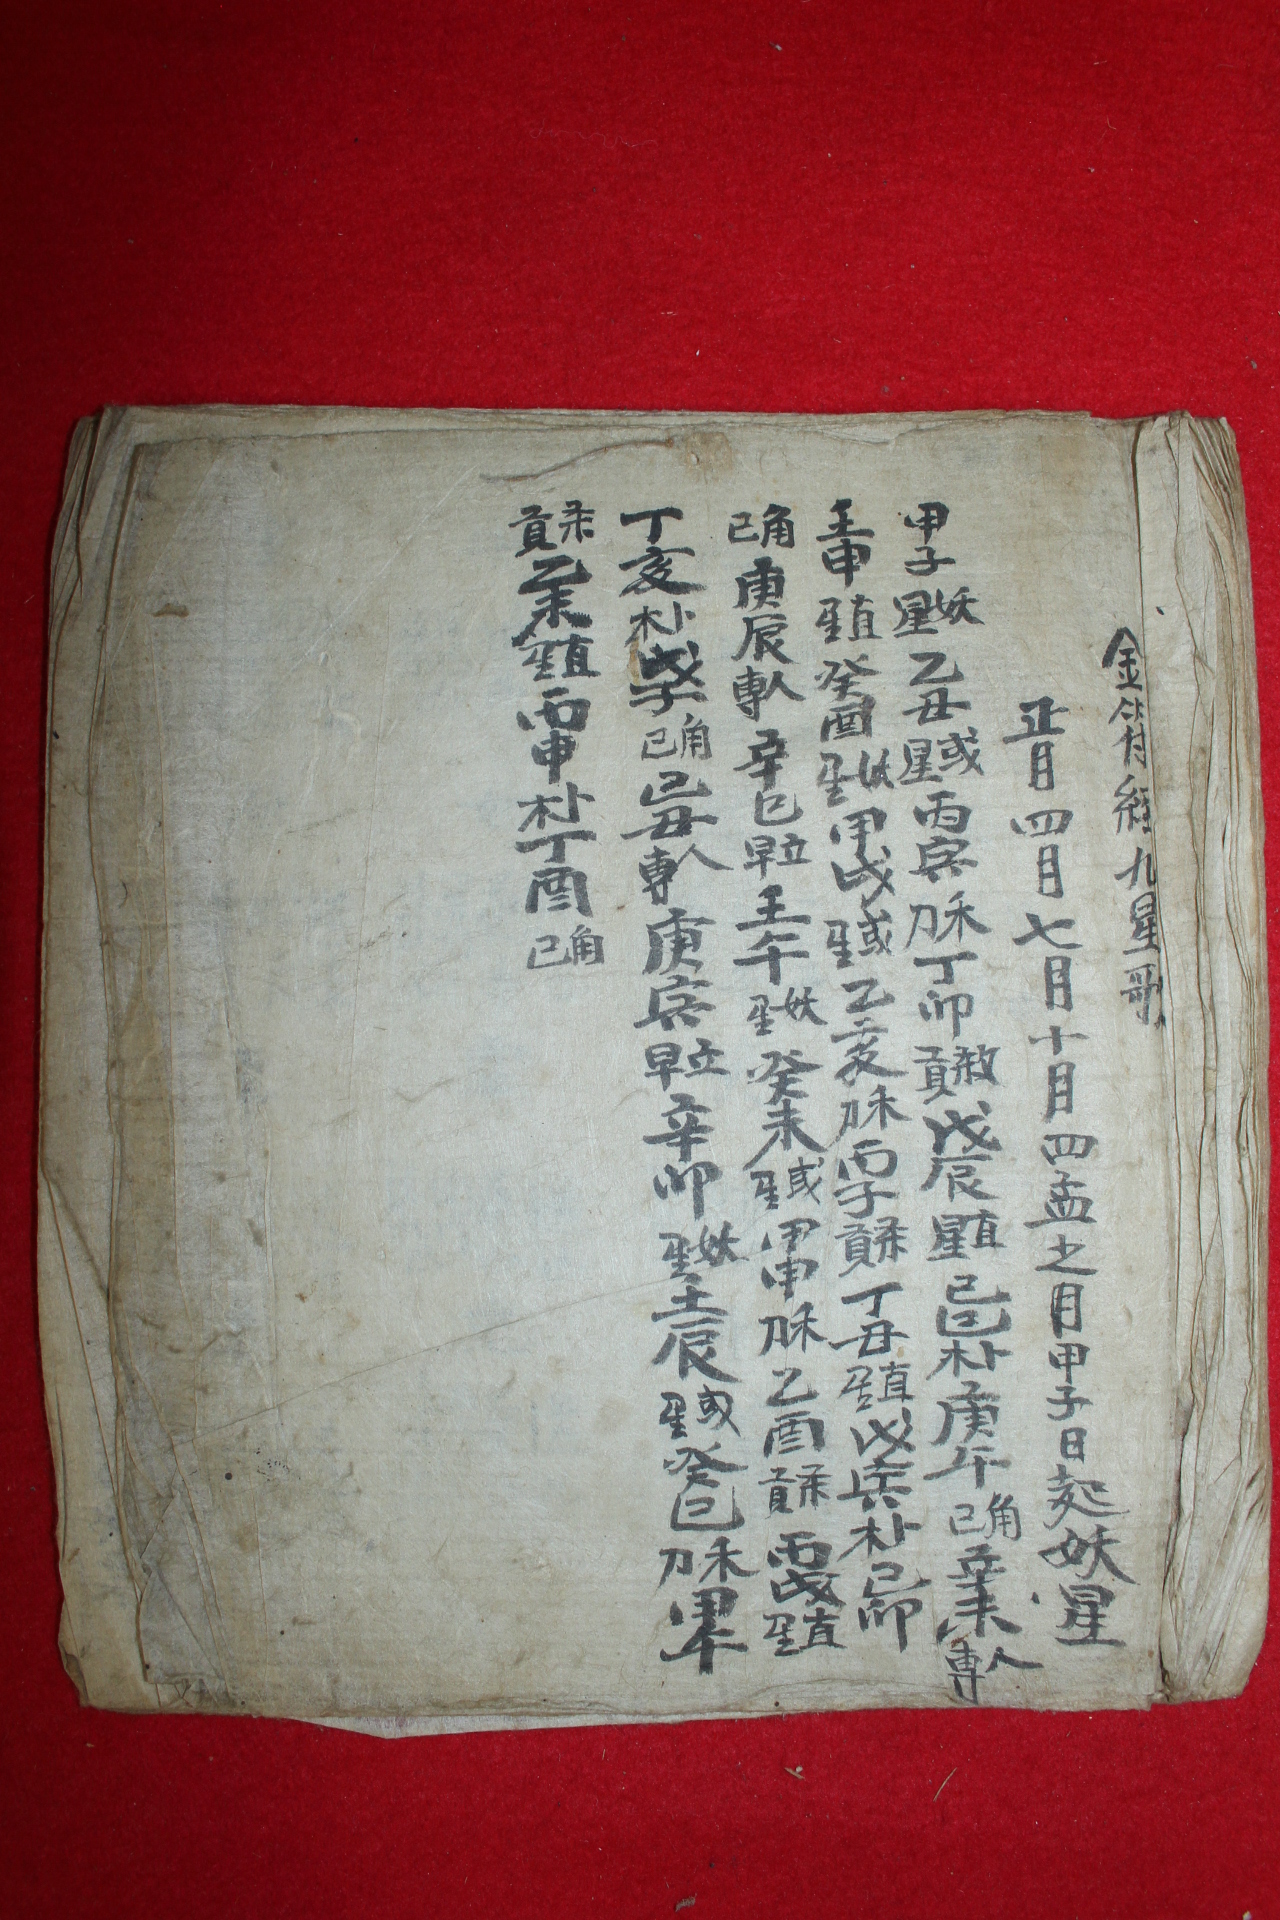 金符經九星歌
正月四月七月十月四孟之月甲子日起妖星
甲子妖星乙丑或星丙寅禾刀丁卯煞貢戊辰直星己巳卜木庚午角己辛未人專
壬申直星癸酉妖星甲戌或星乙亥禾刀丙子杀貢丁丑直星戊寅卜木己卯
角己庚辰人專辛巳立早壬午妖星癸未或星甲申禾刀乙酉杀貢丙戌直星
丁亥卜木戊子角己己丑人專庚寅立早辛卯妖星壬辰或星癸巳禾刀甲午
杀貢乙未直星丙申卜木丁酉角己